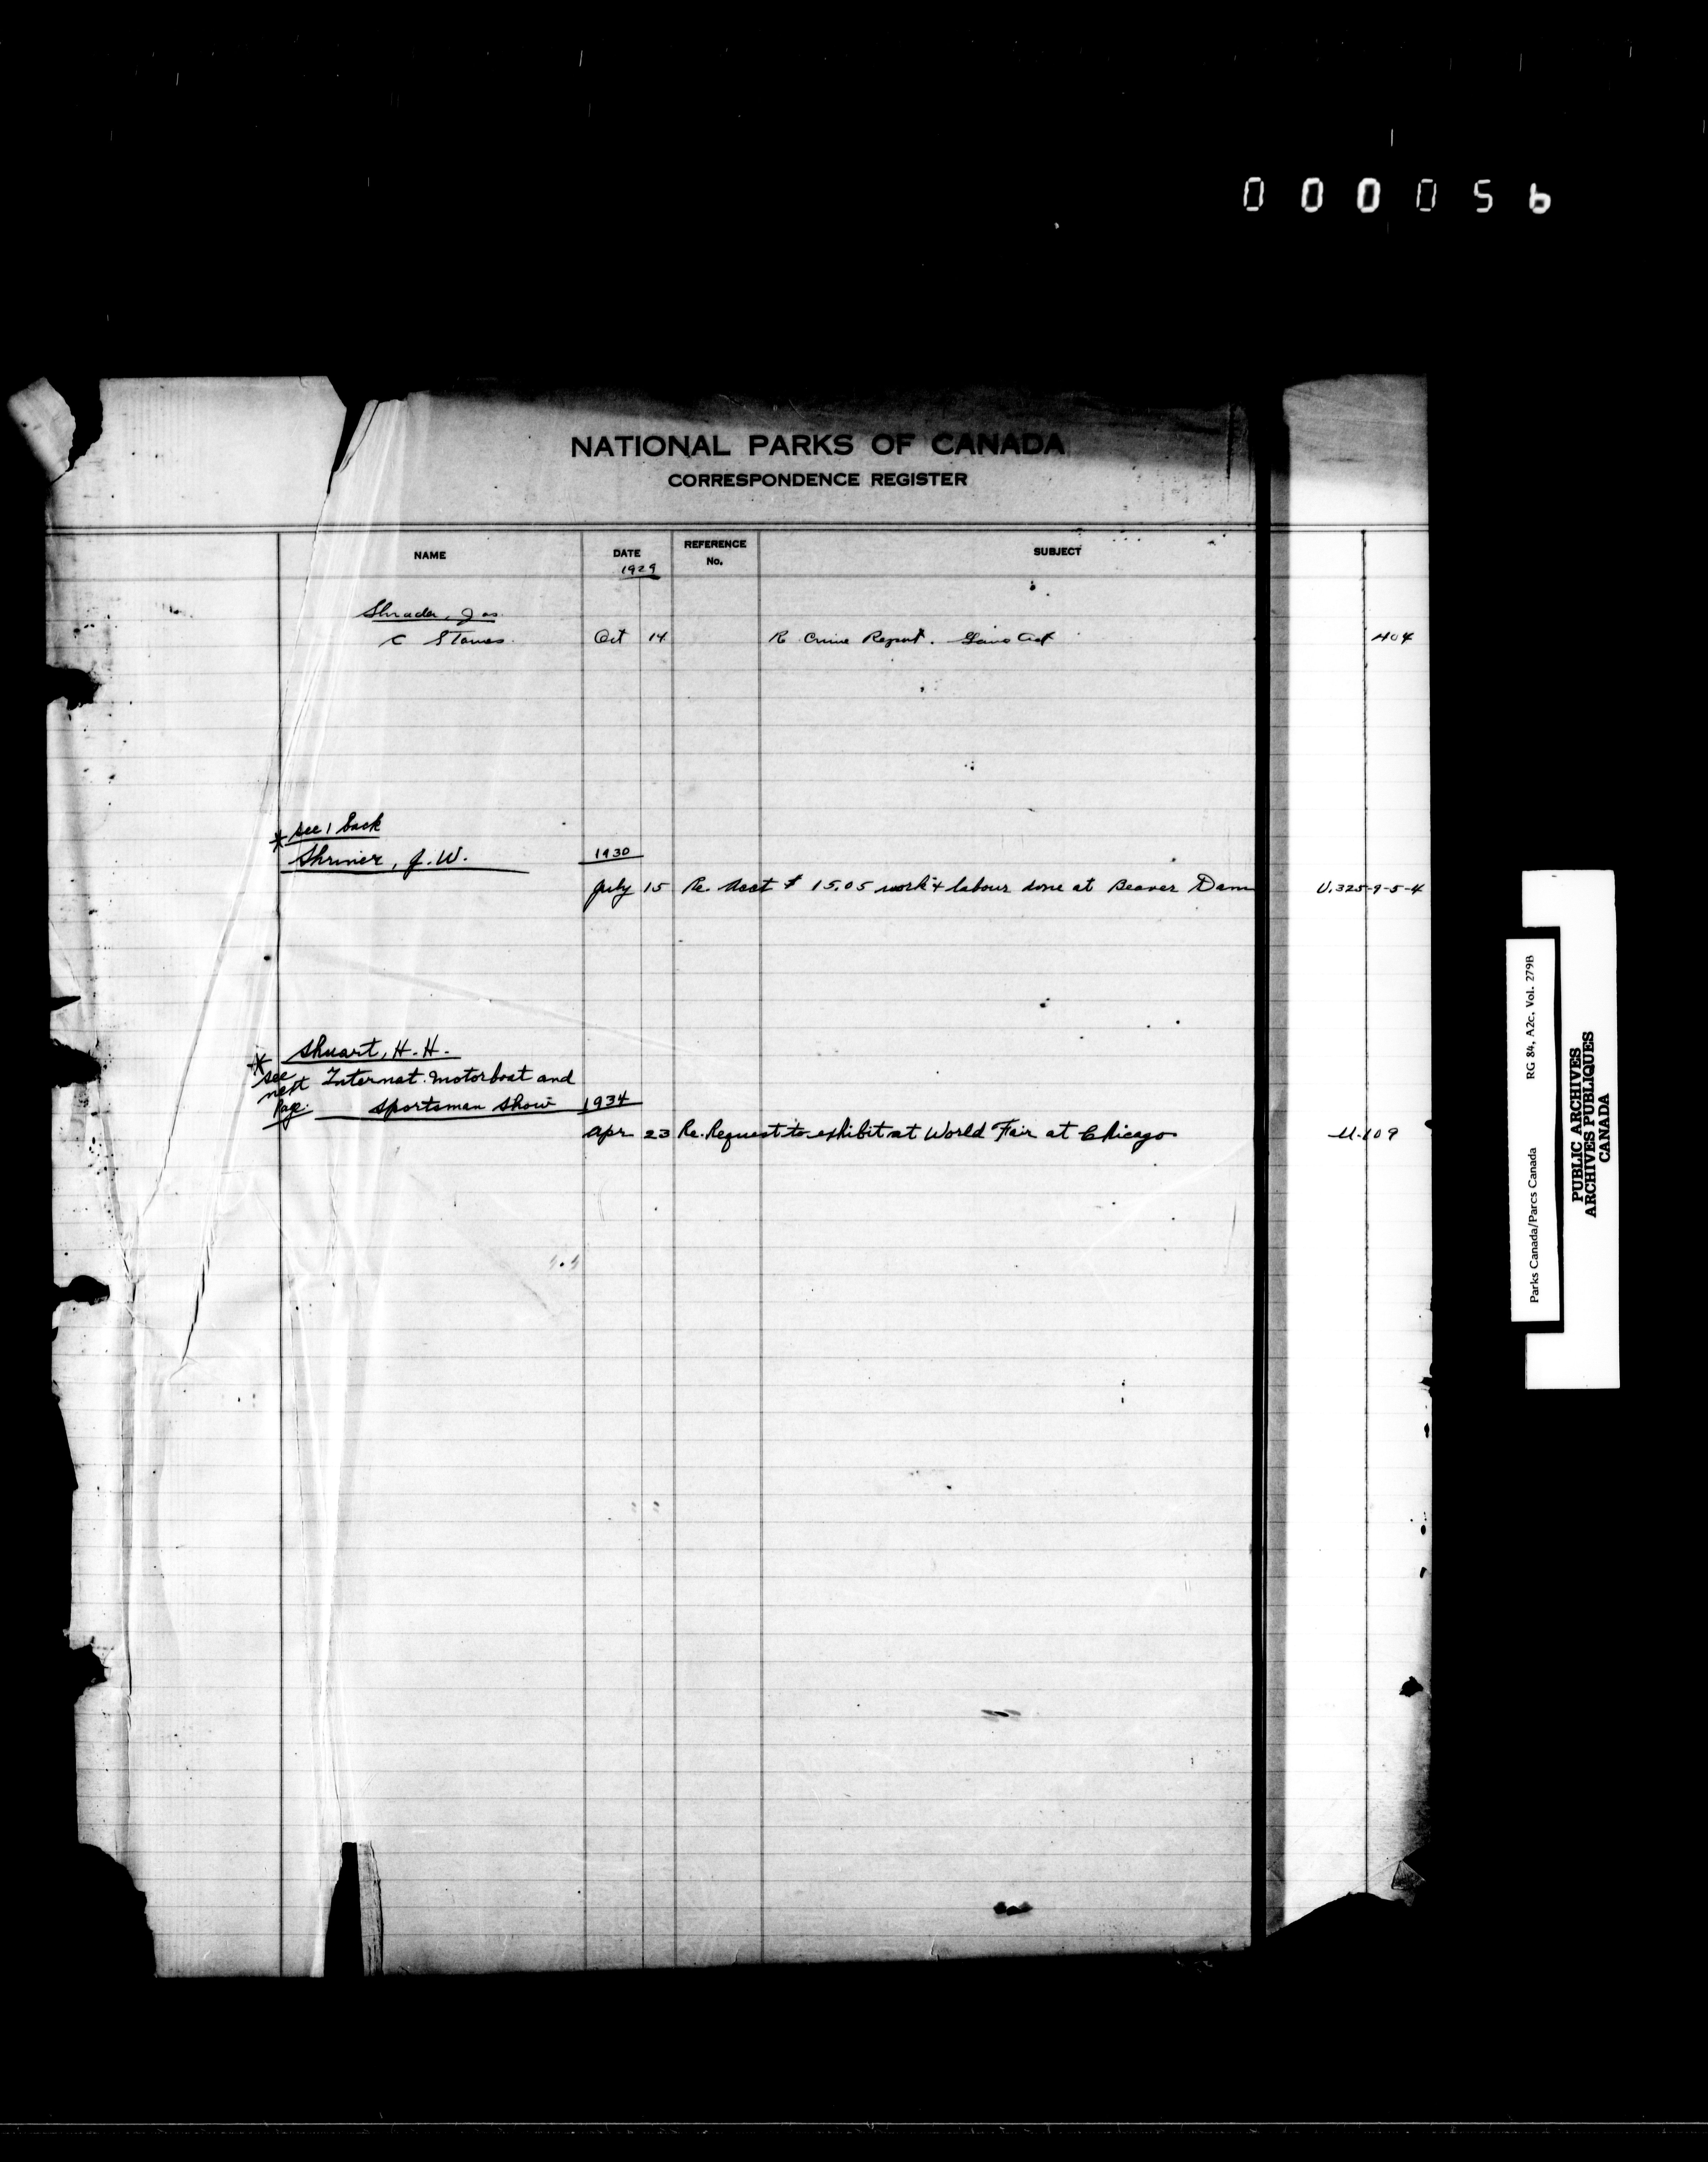 000056
NATIONAL PARKS OF CANADA
CORRESPONDENCE REGISTER
NAME DATE REFERENCE No. SUBJECT
1929
Shrader, Jas.
C Stones Oct 14 R Crime Report. Act 404
* see 1 back
Shriner, J. W. 1930
July 15 Re. Acct $ 15.05 work & labour done at Beaver Dam U.325-9-5-4
* Shuart, H. H.
see next Page. Internat. Motorboat and
Sportsman Show 1934
Apr 23 Re. Request to exhibit at World Fair at Chicago U.109
Parks Canada/Parcs Canada RG 84, A2c, Vol. 279B
PUBLIC ARCHIVES
ARCHIVES PUBLIQUES
CANADA